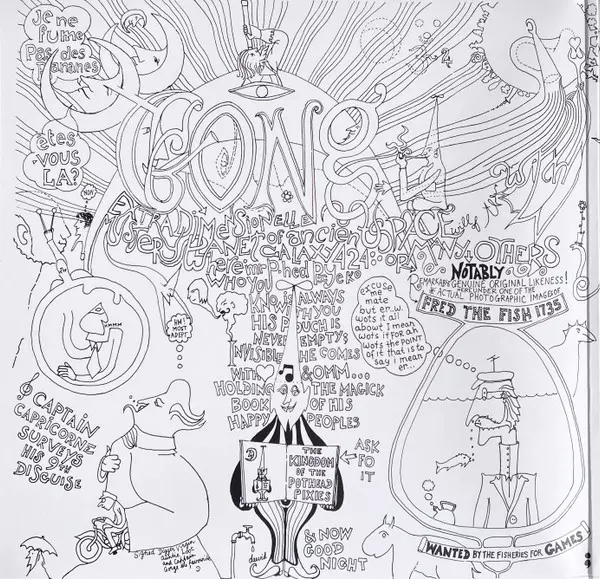 je ne
fume
Pas des
Bananes
êtes
vous
LA?
NON
GONG
Witch
EXTRADIMENSIONELLE
of ancien
GALAXY 424
& OTHERS
NOTABLY
REMARKABLY GENUINE ORIGINAL LIKENESS!
HEREUNDER ONE OF THE
ACTUAL PHOTOGRAPHIC IMAGES OF
FRED THE FISH 1735
WHO YOU
KNOW IS ALWAYS
WITH YOU
HIS POUCH IS
NEVER EMPTY;
INVISIBLE HE COMES
WITH & OMM...
HOLDING THE MAGICK
BOOK OF HIS
HAPPY PEOPLES
excuse
me
mate
but er..w.
wots it all
about I mean
wots it for an
wots the POINT
of it that is to
say i mean
er...
AM I
MOST
ADEPT
CAPTAIN
CAPRICORNE
SURVEYS
HIS 9TH
DISGUISE
THE
KINGDOM
OF THE
POTHEAD
PIXIES
ASK
FO
IT
& NOW
GOOD
NIGHT
david
Signed Digger Virgin
WANTED BY THE FISHERIES FOR GAMES!